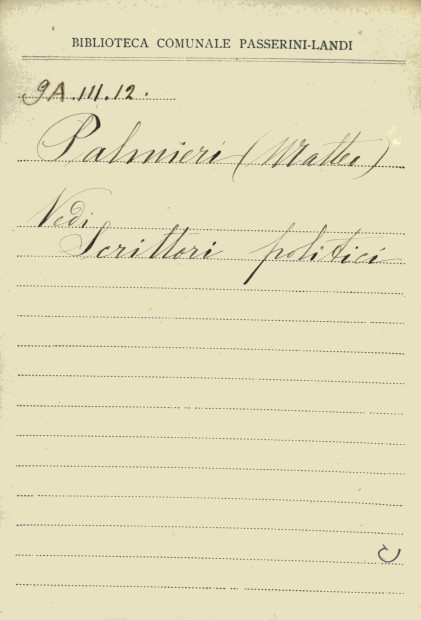 BIBLIOTECA COMUNALE PASSERINI-LANDI
9A.III.12.
Palmieri (Matteo)
Vedi
Scrittori politici
C